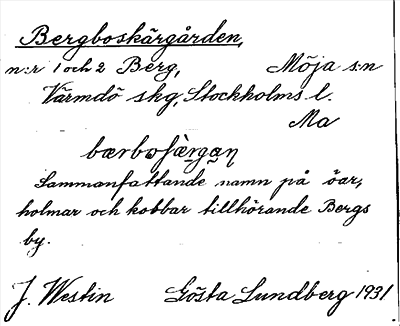 Bergboskärgården,
n:r 1 och 2 Berg, Möja s:n
Värmdö skg, Stockholms l.
Ma
bærbofæ̀rgan̥
Sammanfattande namn på öar,
holmar och kobbar tillhörande Bergs
by.
J. Westin Gösta Lundberg 1931